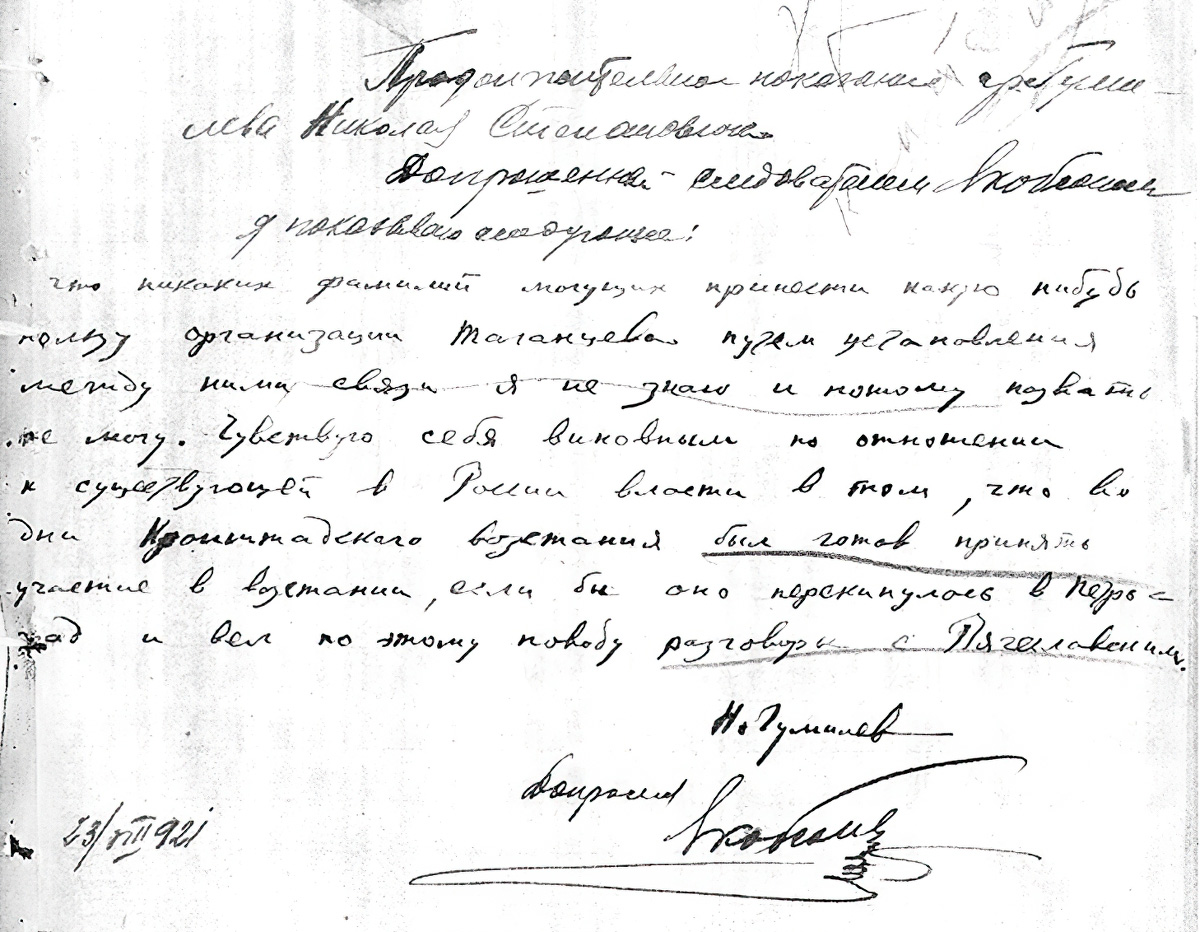 Продолжительное показание гр. Гуми-
лева Николая Степановича
Допрошенный следователем Якобсоном
я показываю следующее:
что никаких фамилий могущих принести какую нибудь
пользу организации Таганцева путем установления
между ними связи я не знаю и потому назвать
не могу. Чувствую себя виновным по отношении
к существующей в России власти в том, что в
дни Кронштадского возстания был готов принять
участие в возстании, если бы оно перекинулось в Петро-
град и вел по этому поводу разговоры с Вячеславским.
Н. Гумилев
Допросил
Якобсон
23/VIII 921